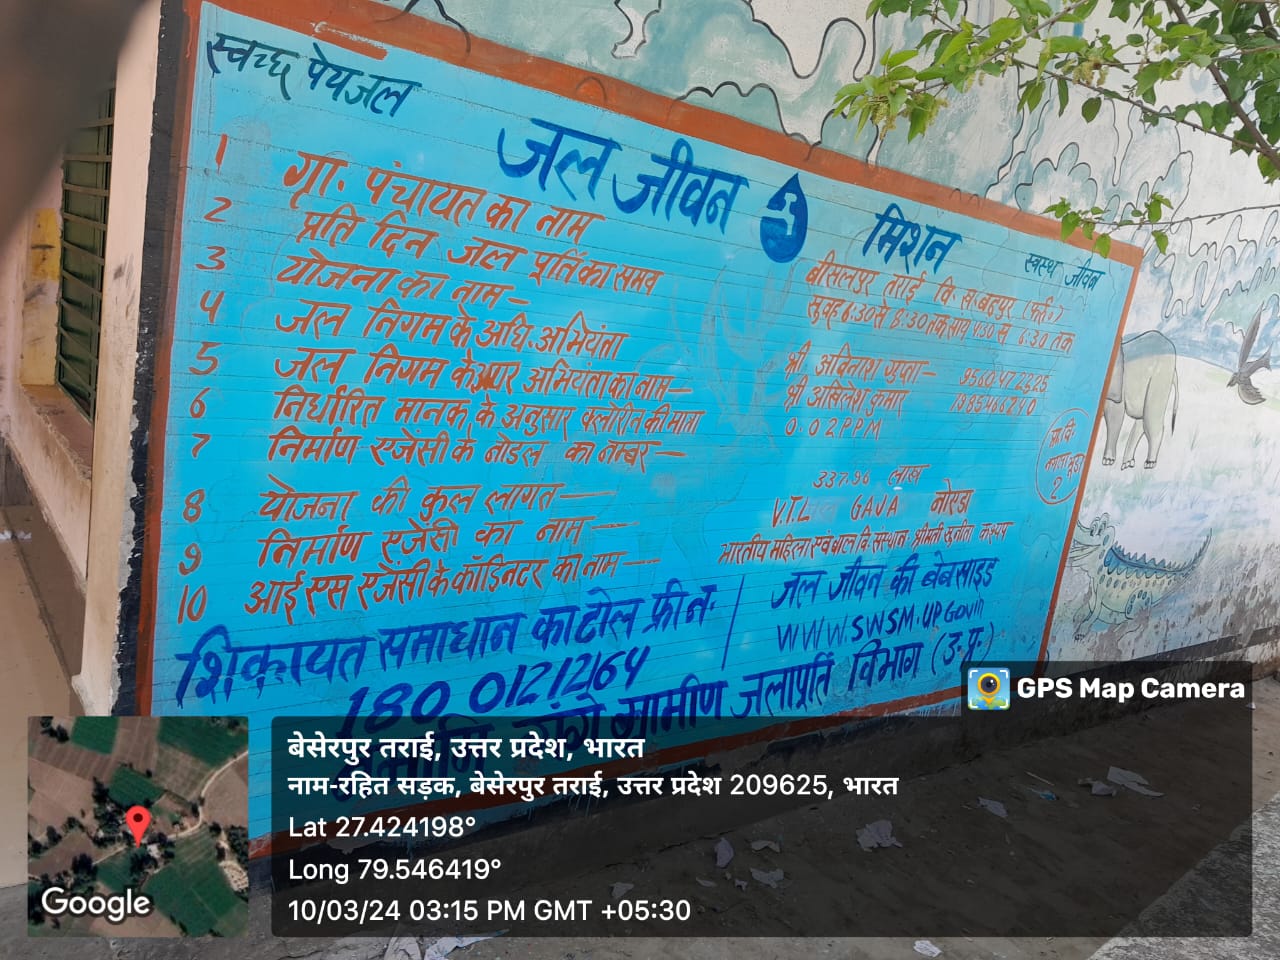 स्वच्छ पेयजल
जल जीवन मिशन
स्वस्थ जीवन
1 ग्रा. पंचायत का नाम बीसलपुर तराई वि. ख. बढ़पुर (फर्रु०)
2 प्रति दिन जल पूर्ति का समय सुबह 6:30 से 8:30 तक सायं 4:30 से 6:30 तक
3 योजना का नाम –
4 जल निगम के अधि. अभियंता श्री अविनाश गुप्ता –
5 जल निगम के अपर अभियंता का नाम – श्री अखिलेश कुमार
6 निर्धारित मानक के अनुसार क्लोरीन की मात्रा 0.02PPM
7 निर्माण एजेंसी के नोडल का नम्बर –
8 योजना की कुल लागत – 337.96 लाख
9 निर्माण एजेंसी का नाम – V.T.L GAJA नोएडा
10 आई एस एजेंसी के कॉर्डिनेटर का नाम – भारतीय महिला एवं बाल वि. संस्थान श्रीमती सुनीता कश्यप
प्रा. वि.
नगला
2
शिकायत समाधान का टोल फ्री न. जल जीवन की वेबसाइड
180 01212164 WWW.SWSM.UP.Gov.in
ग्रामीण जलापूर्ति विभाग (उ.प्र.)
GPS Map Camera
बेसेरपुर तराई, उत्तर प्रदेश, भारत
नाम-रहित सड़क, बेसेरपुर तराई, उत्तर प्रदेश 209625, भारत
Lat 27.424198°
Long 79.546419°
10/03/24 03:15 PM GMT +05:30
Google